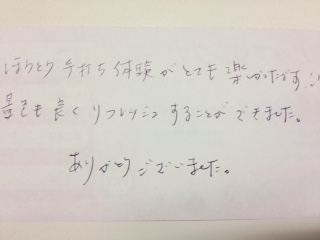 ほうとう手打ち体験がとても楽しかったです!!
景色も良くリフレッシュすることができました。
ありがとうございました。